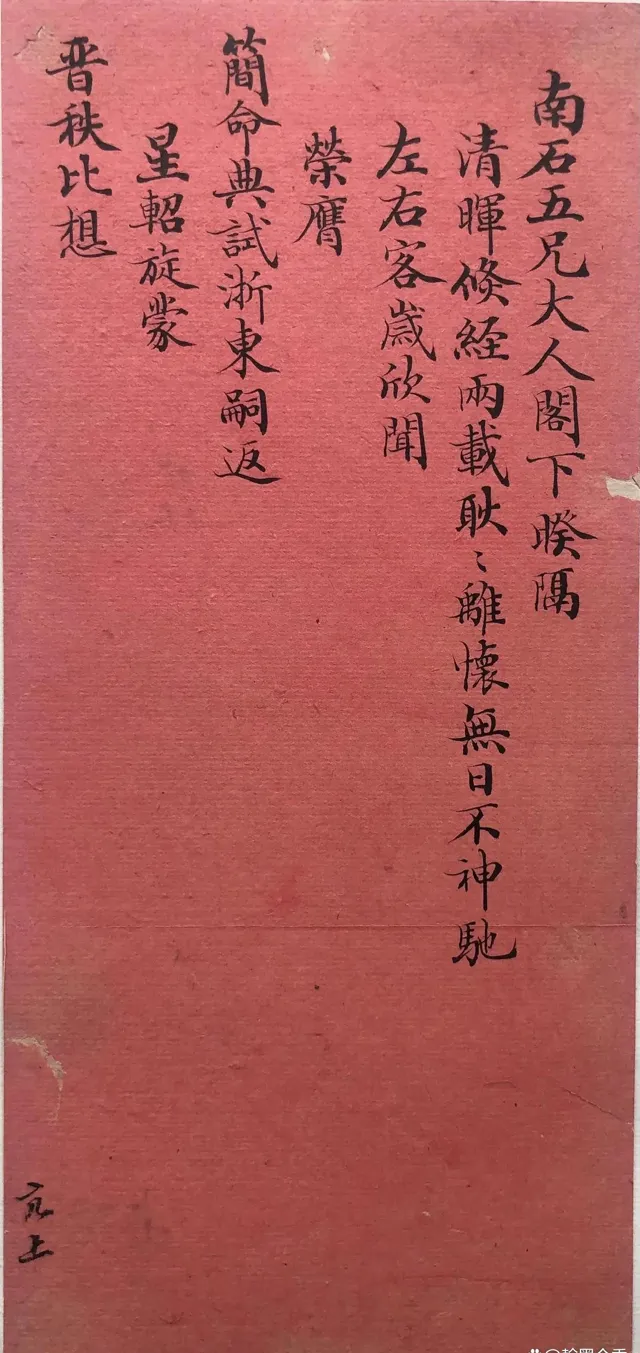 南石五兄大人閣下暌隔
清暉倏經兩載耿〻離懷無日不神馳
左右客歲欣聞
榮膺
簡命典試浙東嗣返
星軺旋蒙
晋秩比想
上